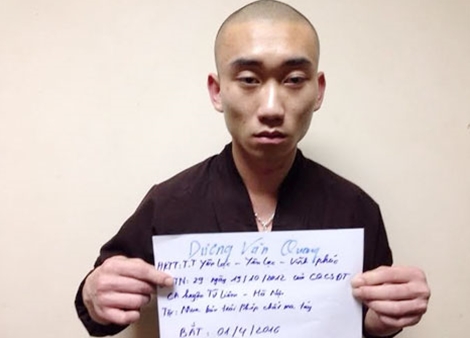 Dương Văn Quang
HKTT: T.T Yên Lạc - Yên Lạc - Vĩnh phúc
TN: 29 ngày 19/10/2012 của CQCSĐT
CA huyện Từ Liêm - Hà Nội
Tội: Mua bán trái phép chất ma túy
BẮT: 01/4/2016